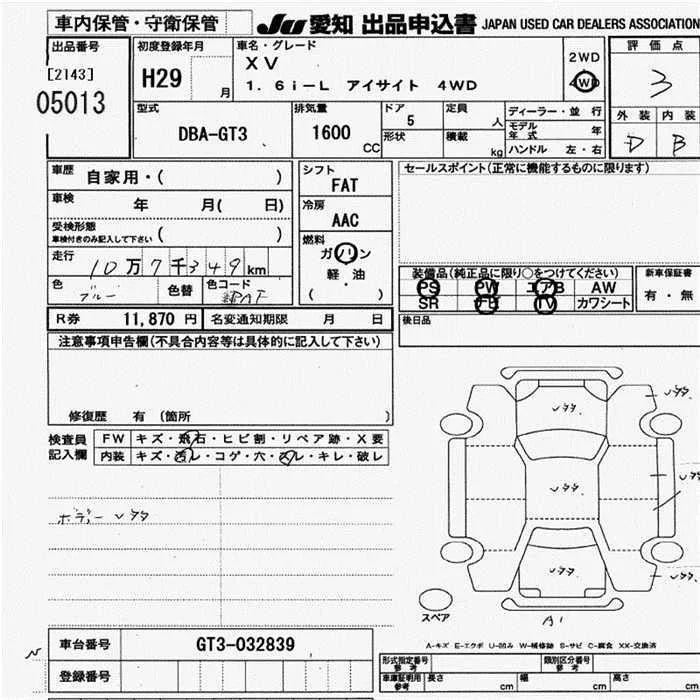 車内保管・守衛保管
JU 愛知 出品申込書 JAPAN USED CAR DEALERS ASSOCIATION
出品番号
[2143]
05013
初度登録年月
H29 月
車名・グレード
XV
1.6i-L アイサイト 4WD
2WD
4WD
評価点
3
外装 内装
D B
型式
DBA-GT3
排気量
1600 CC
ドア 5
形状
定員 人
積載 kg
ディーラー・並行
モデル年式 年
ハンドル 左・右
車歴 自家用・( )
車検 年 月( 日)
受検形態
車検付きのみ記入して下さい ( )
走行 10万7千349km
色 ブルー 色替 色コード
シフト
FAT
冷房
AAC
燃料
ガソリン
軽・油
( )
セールスポイント(正常に機能するものに限ります)
装備品(純正品に限り○をつけてください)
PS PW エアB AW
SR ナビ TV カワシート
新車保証書
有・無
後日品
R券 11,870円 名変通知期限 月 日
注意事項申告欄(不具合内容等は具体的に記入して下さい)
修復歴 有(箇所 )
検査員
記入欄
FW キズ・飛石・ヒビ割・リペア跡・X要
内装 キズ・汚レ・コゲ・穴・スレ・キレ・破レ
ボデー
スペア
A1
A-キズ E-エクボ U-凹み W-補修跡 S-サビ C-腐食 XX-交換済
車台番号 GT3-032839
登録番号
型式指定番号
参考
類別区分番号
参考
車庫証明用
参考
長さ cm 幅 cm 高さ cm